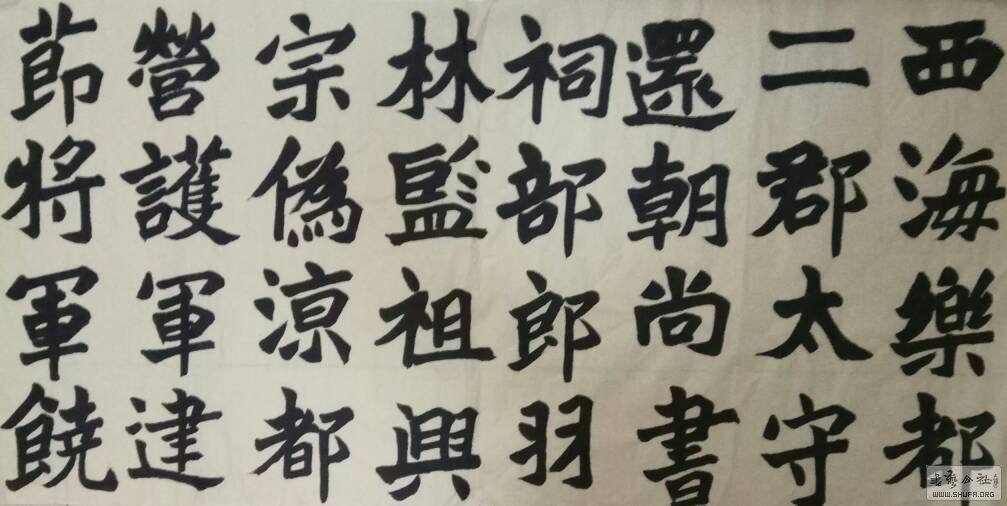 西海樂都
二郡太守
還朝尚書
祠部郎羽
林監祖興
宗偽涼都
營護軍建
莭將軍饒
WWW.SHUFA.ORG